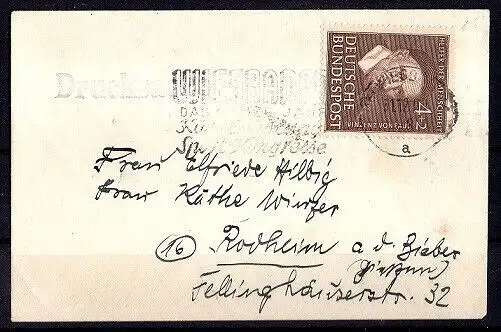 HELFER DER MENSCHHEIT
DEUTSCHE
BUNDESPOST
4+2
VINZENZ VON PAUL
WIESBADEN
Kongresse
a
Frau Elfriede Hilbig
Frau Käthe Winter
(16) Rodheim a. d. Bieber
(Gießen)
Fellinghäuserstr. 32